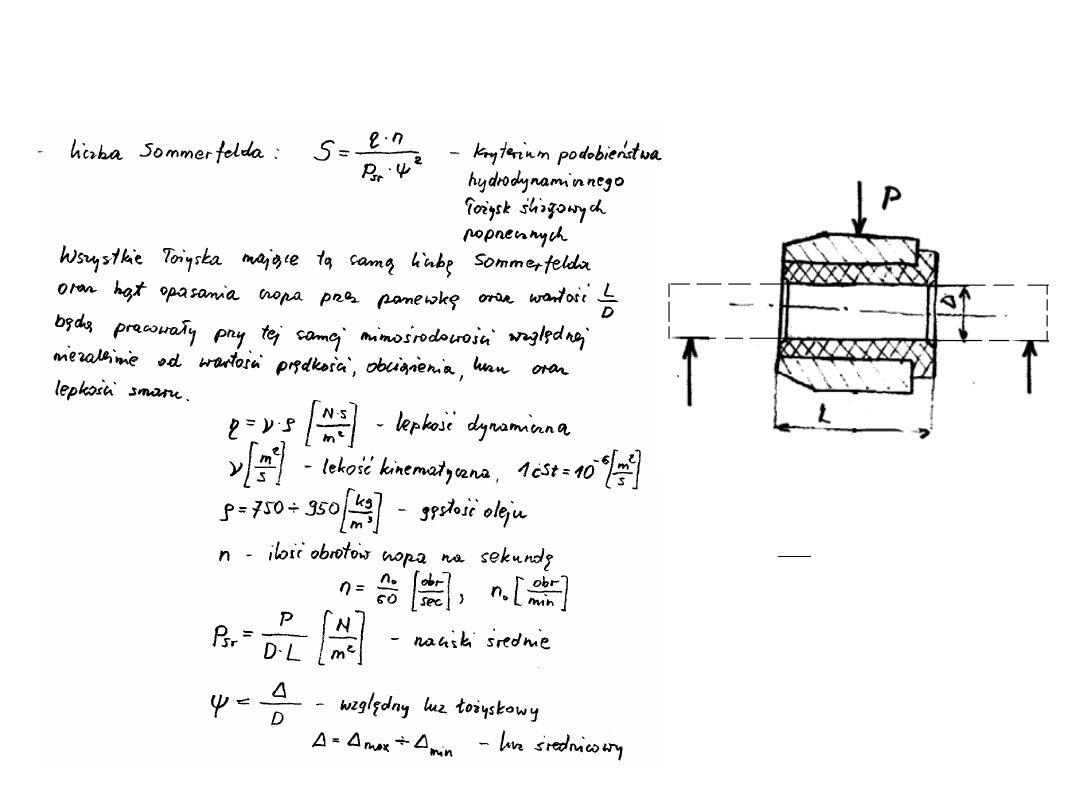 - liczba Sommerfelda : S = η·n / (Pśr·ψ²) - kryterium podobieństwa
hydrodynamicznego
łożysk ślizgowych
poprzecznych
Wszystkie łożyska mające tą samą liczbę Sommerfelda
oraz kąt opasania czopa przez panewkę oraz wartość L/D
będą pracowały przy tej samej mimośrodowości względnej
niezależnie od wartości prędkości, obciążenia, luzu oraz
lepkości smaru.
η = ν·ρ [N·s/m²] - lepkość dynamiczna
ν [m²/s] - lekość kinematyczna, 1cSt = 10⁻⁶ [m²/s]
ρ = 750 ÷ 950 [kg/m³] - gęstość oleju
n - ilość obrotów czopa na sekundę
n = n₀/60 [obr/sec], n₀ [obr/min]
Pśr = P/(D·L) [N/m²] - naciski średnie
ψ = Δ/D - względny luz łożyskowy
Δ = Δmax ÷ Δmin - luz średnicowy
P
D
L